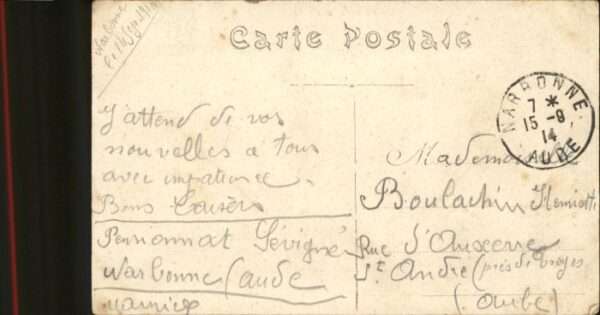 Narbonne
Carte Postale
NARBONNE
7 *
15 - 9
14
AUDE
J'attend de vos
nouvelles a tous
avec impatience.
Bons baisers
Pensionnat Sévigné
Narbonne (aude
Maurice
Mademoiselle
Boulachin Henriette
Rue d'Auxerre
St André (près de Troyes
(Aube)